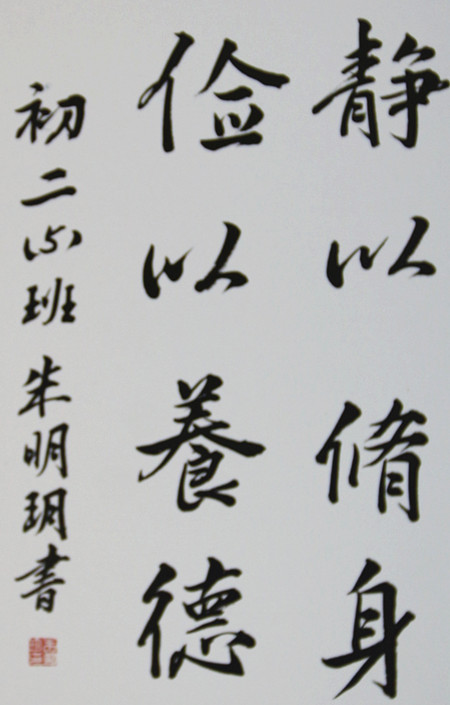 静以脩身
俭以養德
初二(6)班朱明玥書